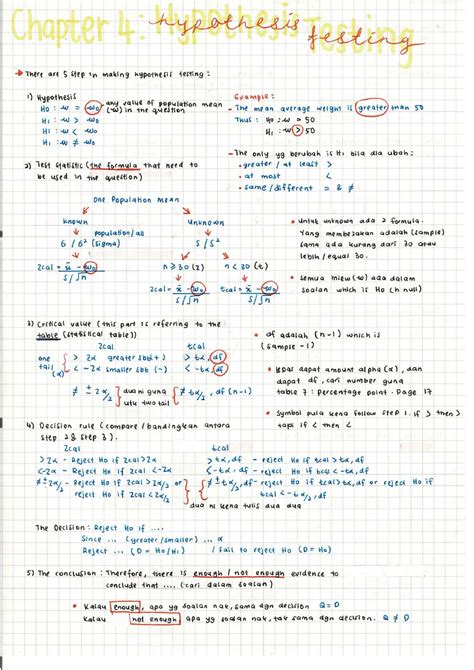 Chapter 4: Hypothesis Testing
hypothesis testing
→ There are 5 step in making hypothesis testing:
1) Hypothesis
H0 : ω = ω0 → any value of population mean (ω) in the question
H1 : ω > ω0
H1 : ω < ω0
H1 : ω ≠ ω0
Example:
- The mean average weight is greater than 50
Thus : H0 : ω = 50
H1 : ω > 50
- The only yg berubah is H1 bila dia ubah:
• greater / at least >
• at most <
• same / different = & ≠
2) Test statistic (the formula that need to
be used in the question)
One Population Mean
known
→ population/all
σ / σ² (sigma)
zcal = x̄ - ω0
s/√n
Unknown
s / s²
n ≥ 30 (z)
zcal = x̄ - ω0
s/√n
n < 30 (t)
tcal = x̄ - ω0
s/√n
• Untuk unknown ada 2 formula.
Yang membezakan adalah (sample)
sama ada kurang dari 30 atau
lebih / equal 30.
• Semua (ω) ada dalam
soalan which is H0 (h null)
3) Critical value (this part is referring to the
table (statistical table))
zcal
tcal
one tail (α)
> zα greater sbb (+)
< -zα smaller sbb (-)
> tα, df
< -tα, df
≠ ± zα/2
dua ni guna
utk two tail
≠ tα/2, df (n-1)
• df adalah (n-1) which is
(sample - 1)
• lepas dapat amount alpha (α), dan
dapat df, cari number guna
table 7 : percentage point. Page 17
• Symbol pula kena follow step 1. if > then >
tapi if < then <
4) Decision rule (compare / bandingkan antara
step 2 & step 3).
zcal
> zα - Reject H0 if zcal > zα
< -zα - Reject H0 if zcal < -zα
≠ ± zα/2 - Reject H0 if zcal > zα/2 or
reject H0 if zcal < zα/2
tcal
> tα, df - reject H0 if tcal > tα, df
< -tα, df - reject H0 if tcal < -tα, df
≠ ± tα/2, df - reject H0 if tcal > tα, df or reject H0 if
tcal < -tα/2, df
dua ni kena tulis dua dua
The Decision : Reject H0 if ....
Since ... (greater / smaller) ... α
Reject ... (D = H0/H1) / Fail to reject H0 (D = H0)
5) The conclusion : Therefore, there is enough / not enough evidence to
conclude that .... (cari dalam soalan)
• Kalau enough, apa yg soalan nak, sama dgn decision Q = D
Kalau not enough apa yg soalan nak, tak sama dgn decision. Q ≠ D